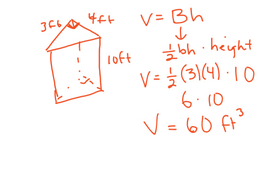 3ft 4ft
10ft
V = Bh
↓
½bh · height
V = ½(3)(4) · 10
6 · 10
V = 60 ft³